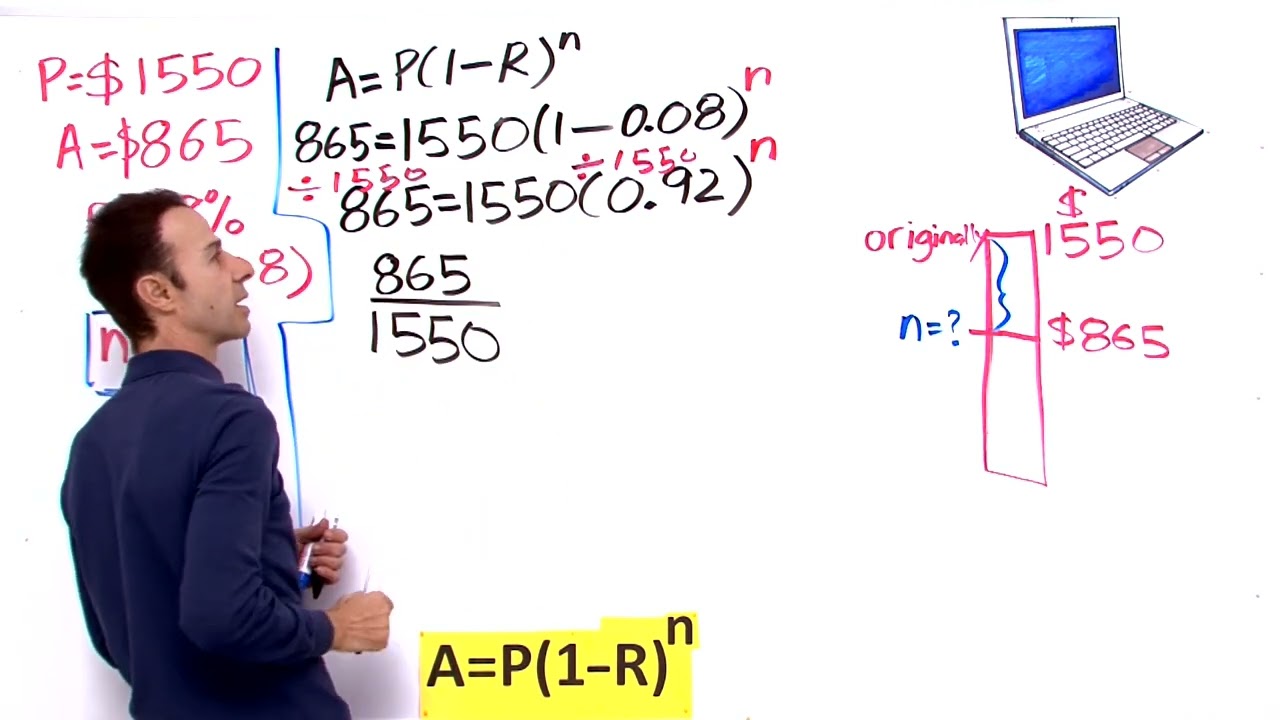 P=$1550
A=$865
8%
8)
n
A=P(1-R)ⁿ
865=1550(1-0.08)ⁿ
÷1550 ÷1550
865=1550(0.92)ⁿ
865
1550
$
originally 1550
n=? $865
A=P(1-R)ⁿ